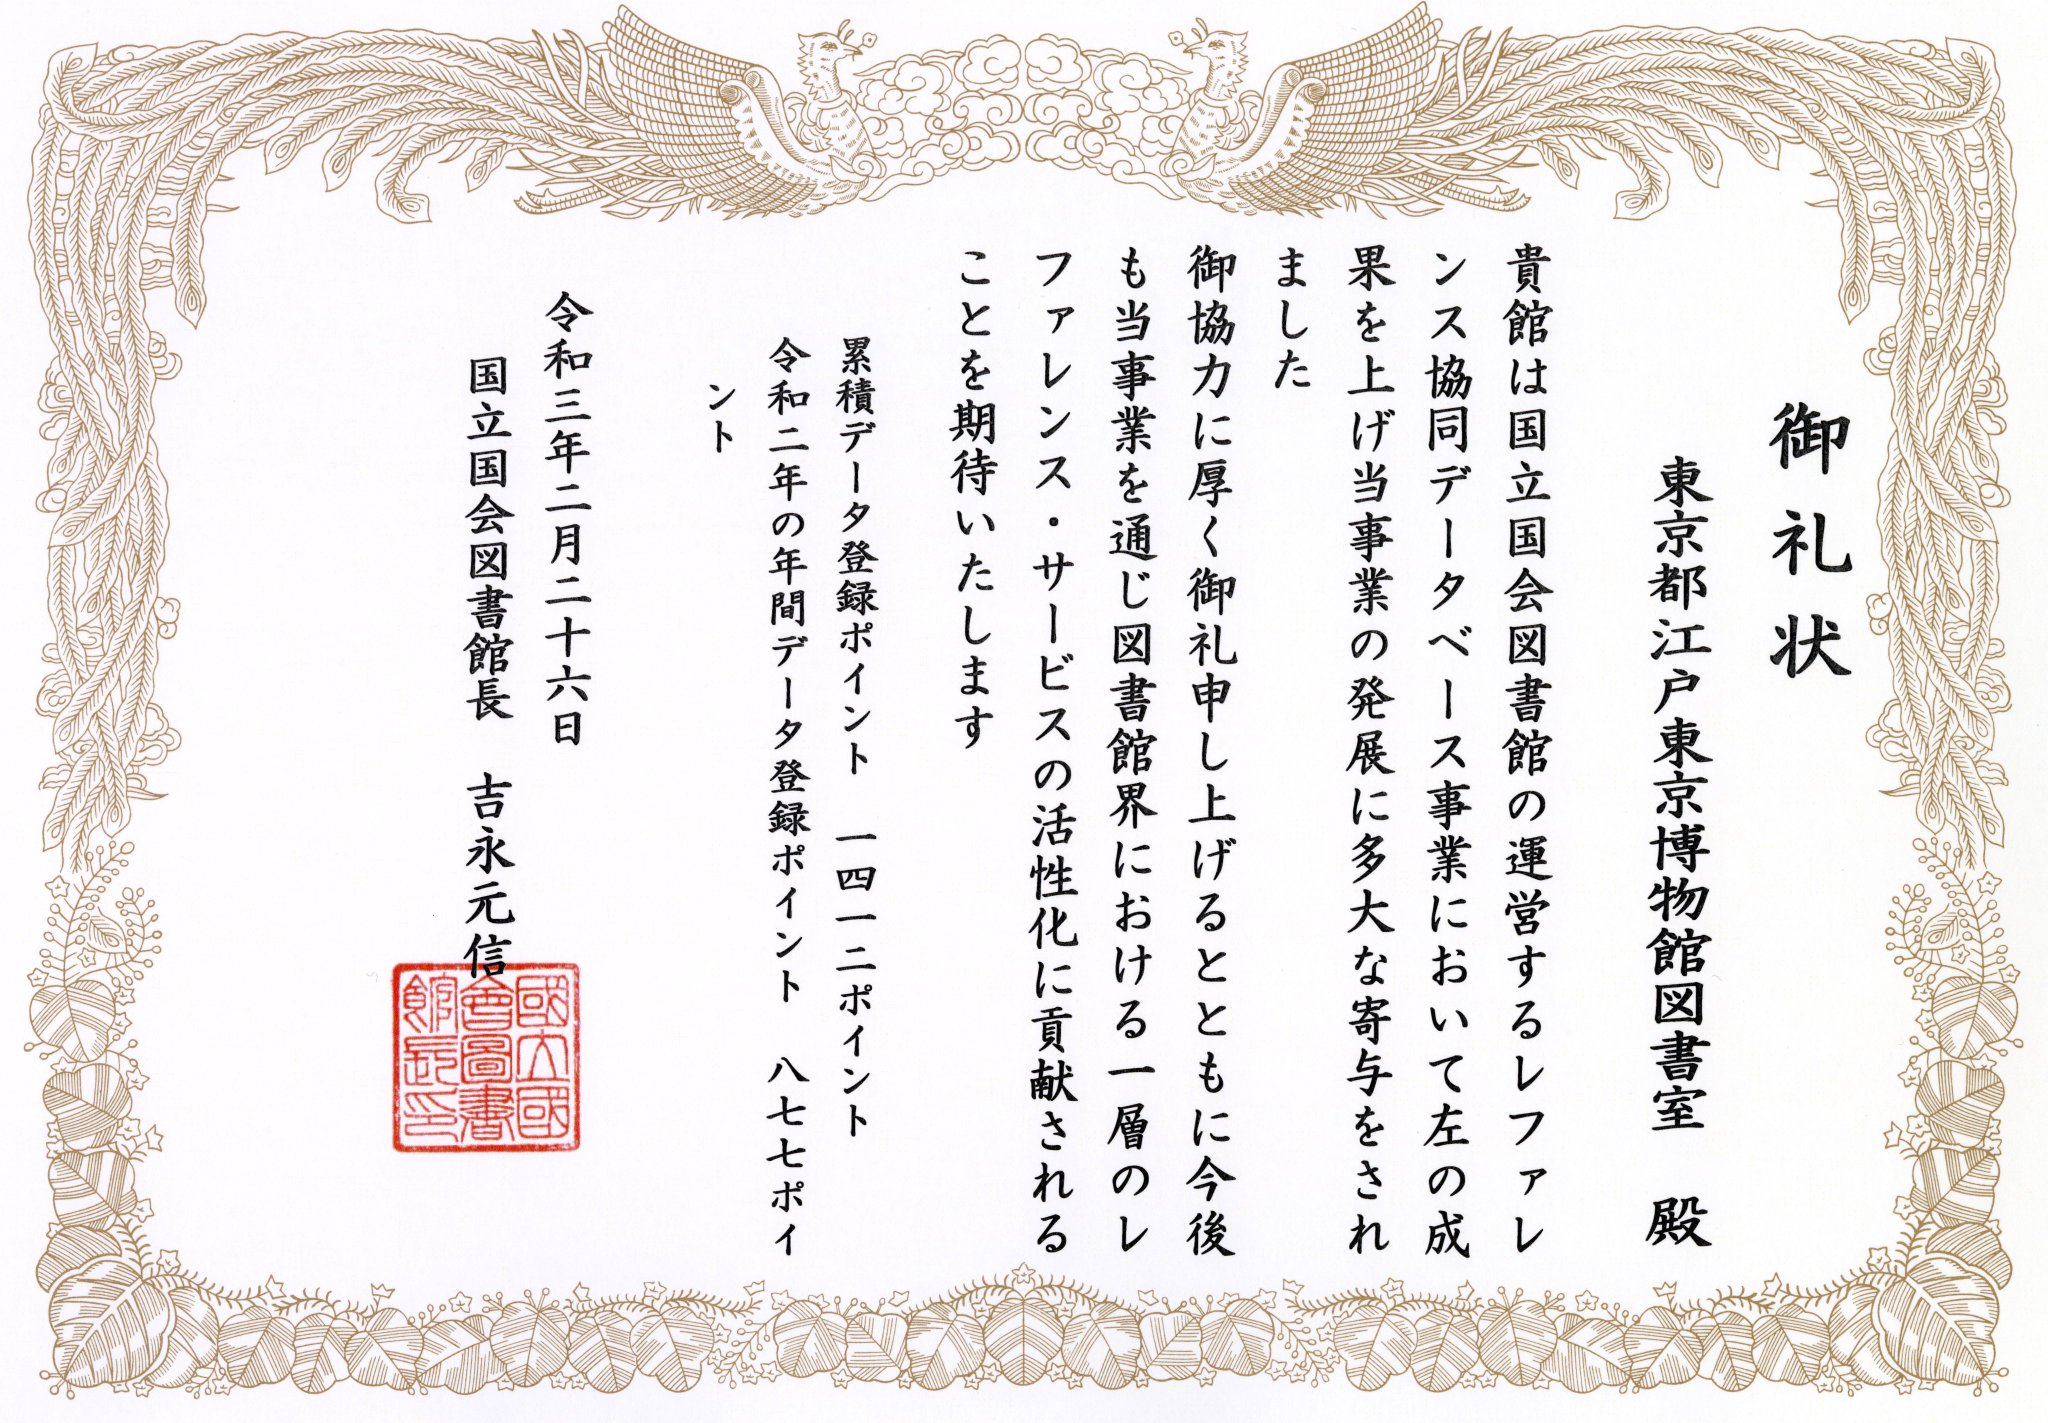 御礼状
東京都江戸東京博物館図書室　殿
貴館は国立国会図書館の運営するレファレ
ンス協同データベース事業において左の成
果を上げ当事業の発展に多大な寄与をされ
ました
御協力に厚く御礼申し上げるとともに今後
も当事業を通じ図書館界における一層のレ
ファレンス・サービスの活性化に貢献される
ことを期待いたします
累積データ登録ポイント　一四一二ポイント
令和二年の年間データ登録ポイント　八七七ポイ
ント
令和三年二月二十六日
国立国会図書館長　吉永元信
國立國
會圖書
館長印